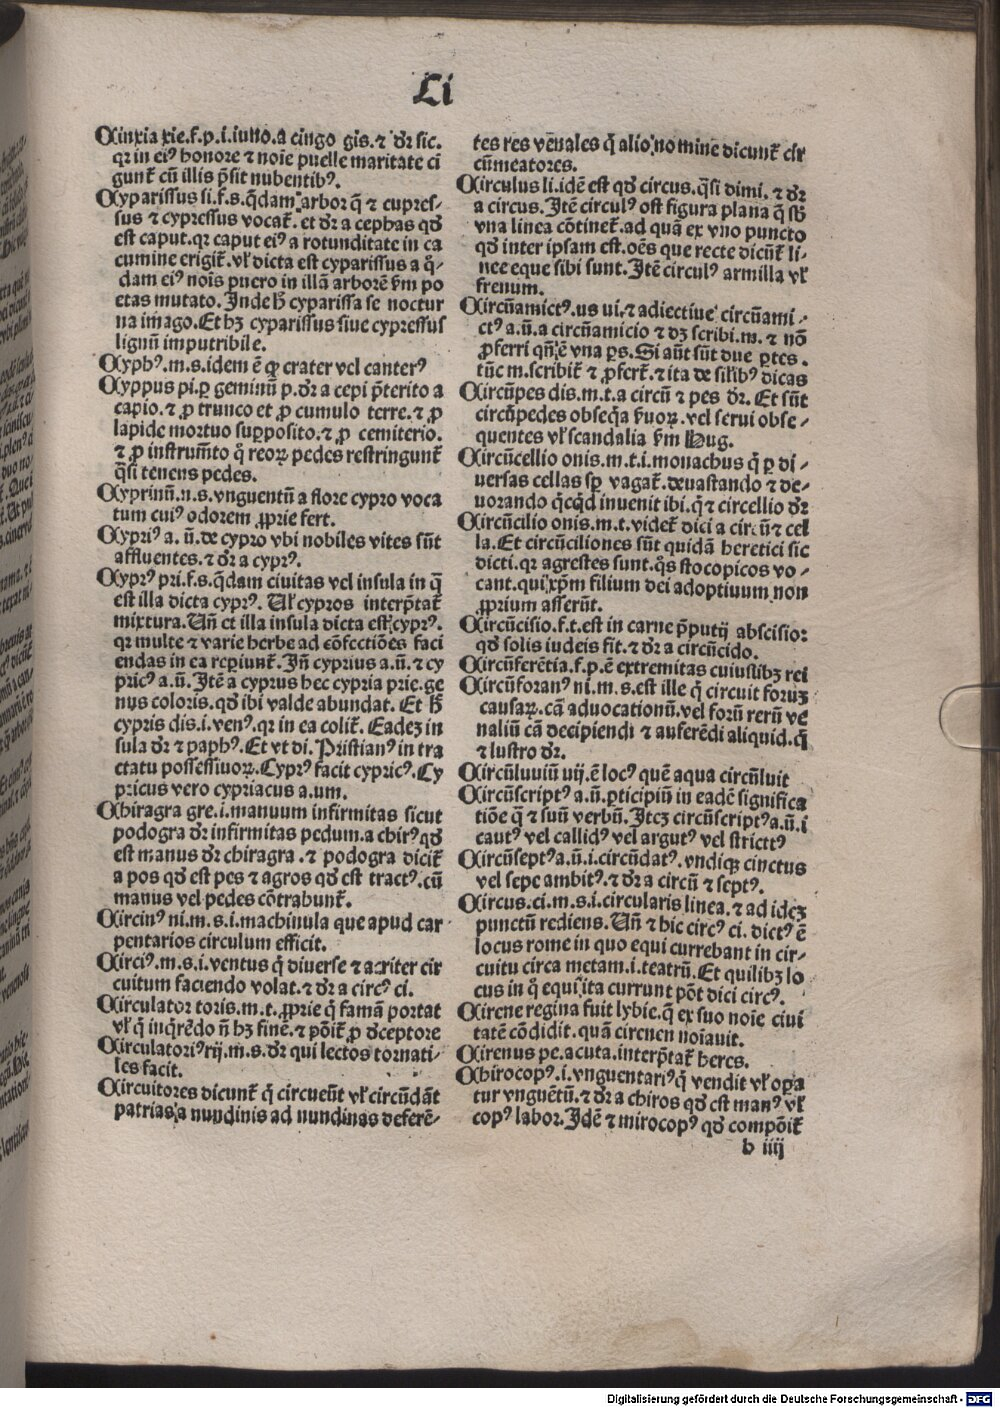 Ci
Cinxia xie.f.p.i.iuno.a cingo gis.⁊ dr̄ sic.
qr in eiꝰ honore ⁊ noīe puelle maritate ci
gunt̄ cū illis p̄sit nubentibꝰ.
Cyparissus si.f.s.q̄dam arbor q̄ ⁊ cupres-
sus ⁊ cypressus vocat̄. et dr̄ a cephas qd̄
est caput.qr caput eiꝰ a rotunditate in ca
cumine erigit̄.vl̄ dicta est cyparissus a q̄-
dam eiꝰ noīs puero in illā arborē ẜm po
etas mutato.Inde h̄ cyparissa se noctur
na imago.Et hꝫ cyparissus siue cypressus
lignū imputribile.
Cyphꝰ.m.s.idem ē qͥ crater vel canterꝰ
Cyppus pi.ꝑ geminū p.dr̄ a cepi p̄terito a
capio.⁊ ꝓ trunco et ꝓ cumulo terre.⁊ ꝓ
lapide mortuo supꝑosito.⁊ ꝓ cemiterio.
⁊ ꝓ instrum̄to q̄ reoꝝ pedes restringunt̄
q̄si tenens pedes.
Cyprinū.n.s.vnguentū a flore cypro voca
tum cuiꝰ odorem ꝓprie fert.
Cypriꝰ a.ū.de cypro vbi nobiles vites sūt
affluentes.⁊ dr̄ a cyprꝰ.
Cyprꝰ pri.f.s.q̄dam ciuitas vel insula in q̄
est illa dicta cyprꝰ. Vl̄ cypros interp̄tat̄
mixtura.Vn̄ et illa insula dicta est cyprꝰ.
qr multe ⁊ varie herbe ad cōfectiōes faci
endas in ea reꝑiunt̄.Jn̄ cyprius a.ū.⁊ cy
pricꝰ a.ū.Itē a cyprus hec cypria prie.ge
nus coloris.qd̄ ibi valde abundat. Et h̄
cypris dis.i.venꝰ.qr in ea colit̄. Eadeꝫ in
sula dr̄ ⁊ paphꝰ.Et vt di. Pristianꝰ in tra
ctatu possessiuoꝝ.Cyprꝰ facit cypricꝰ.Cy
pricus vero cypriacus a.um.
Chiragra gre.i.manuum infirmitas sicut
podogra dr̄ infirmitas pedum.a chirꝰ qd̄
est manus dr̄ chiragra.⁊ podogra dicit̄
a pos qd̄ est pes ⁊ agros qd̄ est tractꝰ.cū
manus vel pedes cōtrabunt̄.
Circinꝰ ni.m.s.i.machinula que apud car
pentarios circulum efficit.
Circiꝰ.m.s.i.ventus q̄ diuerse ⁊ acriter cir
cuitum faciendo volat.⁊ dr̄ a circꝰ ci.
Circulator toris.m.t.ꝓprie q̄ famā portat
vl̄ q̄ inq̄rēdo n̄ hꝫ finē.⁊ pōit̄ ꝓ d̄ceptore
Circulatoriꝰ rij.m.s.dr̄ qui lectos tornati-
les facit.
Circuitores dicunt̄ q̄ circueūt vl̄ circūdāt
patrias a nundinis ad nundinas deferē-
tes res venales q̄ alio nomine dicunt̄ cir
cūmeatores.
Circulus li.idē est qd̄ circus.q̄si dimi.⁊ dr̄
a circus.Itē circulꝰ est figura plana q̄ sb̄
vna linea cōtinet̄.ad quā ex vno puncto
qd̄ inter ipsam est.oēs que recte dicūt̄ li-
nee eque sibi sunt.Itē circulꝰ armilla vl̄
frenum.
Circūamictꝰ.us ui.⁊ adiectiue circūami-
ctꝰ a.ū.a circūamicio ⁊ dꝫ scribi.m.⁊ nō
ꝓferri qn̄ ē vna ꝑs.Si aūt sūt due ꝑtes.
tūc m.scribit̄ ⁊ ꝓfert̄.⁊ ita de silibꝰ dicas
Circūpes dis.m.t.a circū ⁊ pes dr̄. Et sūt
circūpedes obseq̄a ẜuoꝝ.vel serui obse-
quentes vl̄ scandalia ẜm Hug.
Circūcellio onis.m.t.i.monachus q̄ ꝑ di-
uersas cellas sꝑ vagat̄.deuastando ⁊ de-
uorando qͥcqͥd inuenit ibi.q̄ ⁊ circellio dr̄
Circūcilio onis.m.t.videt̄ dici a circū ⁊ cel
la.Et circūciliones sūt quidā heretici sic
dicti.qr agrestes sunt.q̄s stocopicos vo-
cant.qui xp̄m filium dei adoptiuum non
ꝓprium asserūt.
Circūcisio.f.t.est in carne p̄putij abscisio:
qd̄ solis iudeis fit.⁊ dr̄ a circūcido.
Circūferētia.f.p.ē extremitas cuiuslibꝫ rei
Circūforanꝰ ni.m.s.est ille q̄ circuit foruꝫ
causaꝝ.cā aduocationū.vel forū rerū ve
naliū cā decipiendi ⁊ auferēdi aliquid.q̄
⁊ lustro dr̄.
Circūluuiū uij.ē locꝰ quē aqua circūluit
Circūscriptꝰ a.ū.ꝑticipiū in eadē significa
tiōe q̄ ⁊ suū verbū.Iteꝫ circūscriptꝰ a.ū.i
cautꝰ vel callidꝰ vel argutꝰ vel strictꝰ
Circūseptꝰ a.ū.i.circūdatꝰ.vndiqꝫ cinctus
vel sepe ambitꝰ.⁊ dr̄ a circū ⁊ septꝰ.
Circus.ci.m.s.i.circularis linea.⁊ ad ideꝫ
punctū rediens.Vn̄ ⁊ hic circꝰ ci.dictꝰ ē
locus rome in quo equi currebant in cir-
cuitu circa metam.i.teatrū.Et quilibꝫ lo
cus in q̄ equi ita currunt pōt dici circꝰ.
Cirene regina fuit lybie.q̄ ex suo noīe ciui
tatē cōdidit.quā cirenen noīauit.
Cirenus pe.acuta.interp̄tat̄ heres.
Chirocopꝰ.i.vnguentariꝰ q̄ vendit vl̄ opa
tur vnguētū.⁊ dr̄ a chiros qd̄ est manꝰ vl̄
copꝰ labor.Idē ⁊ mirocopꝰ qd̄ compōit̄
b iiij
Digitalisierung gefördert durch die Deutsche Forschungsgemeinschaft - DFG